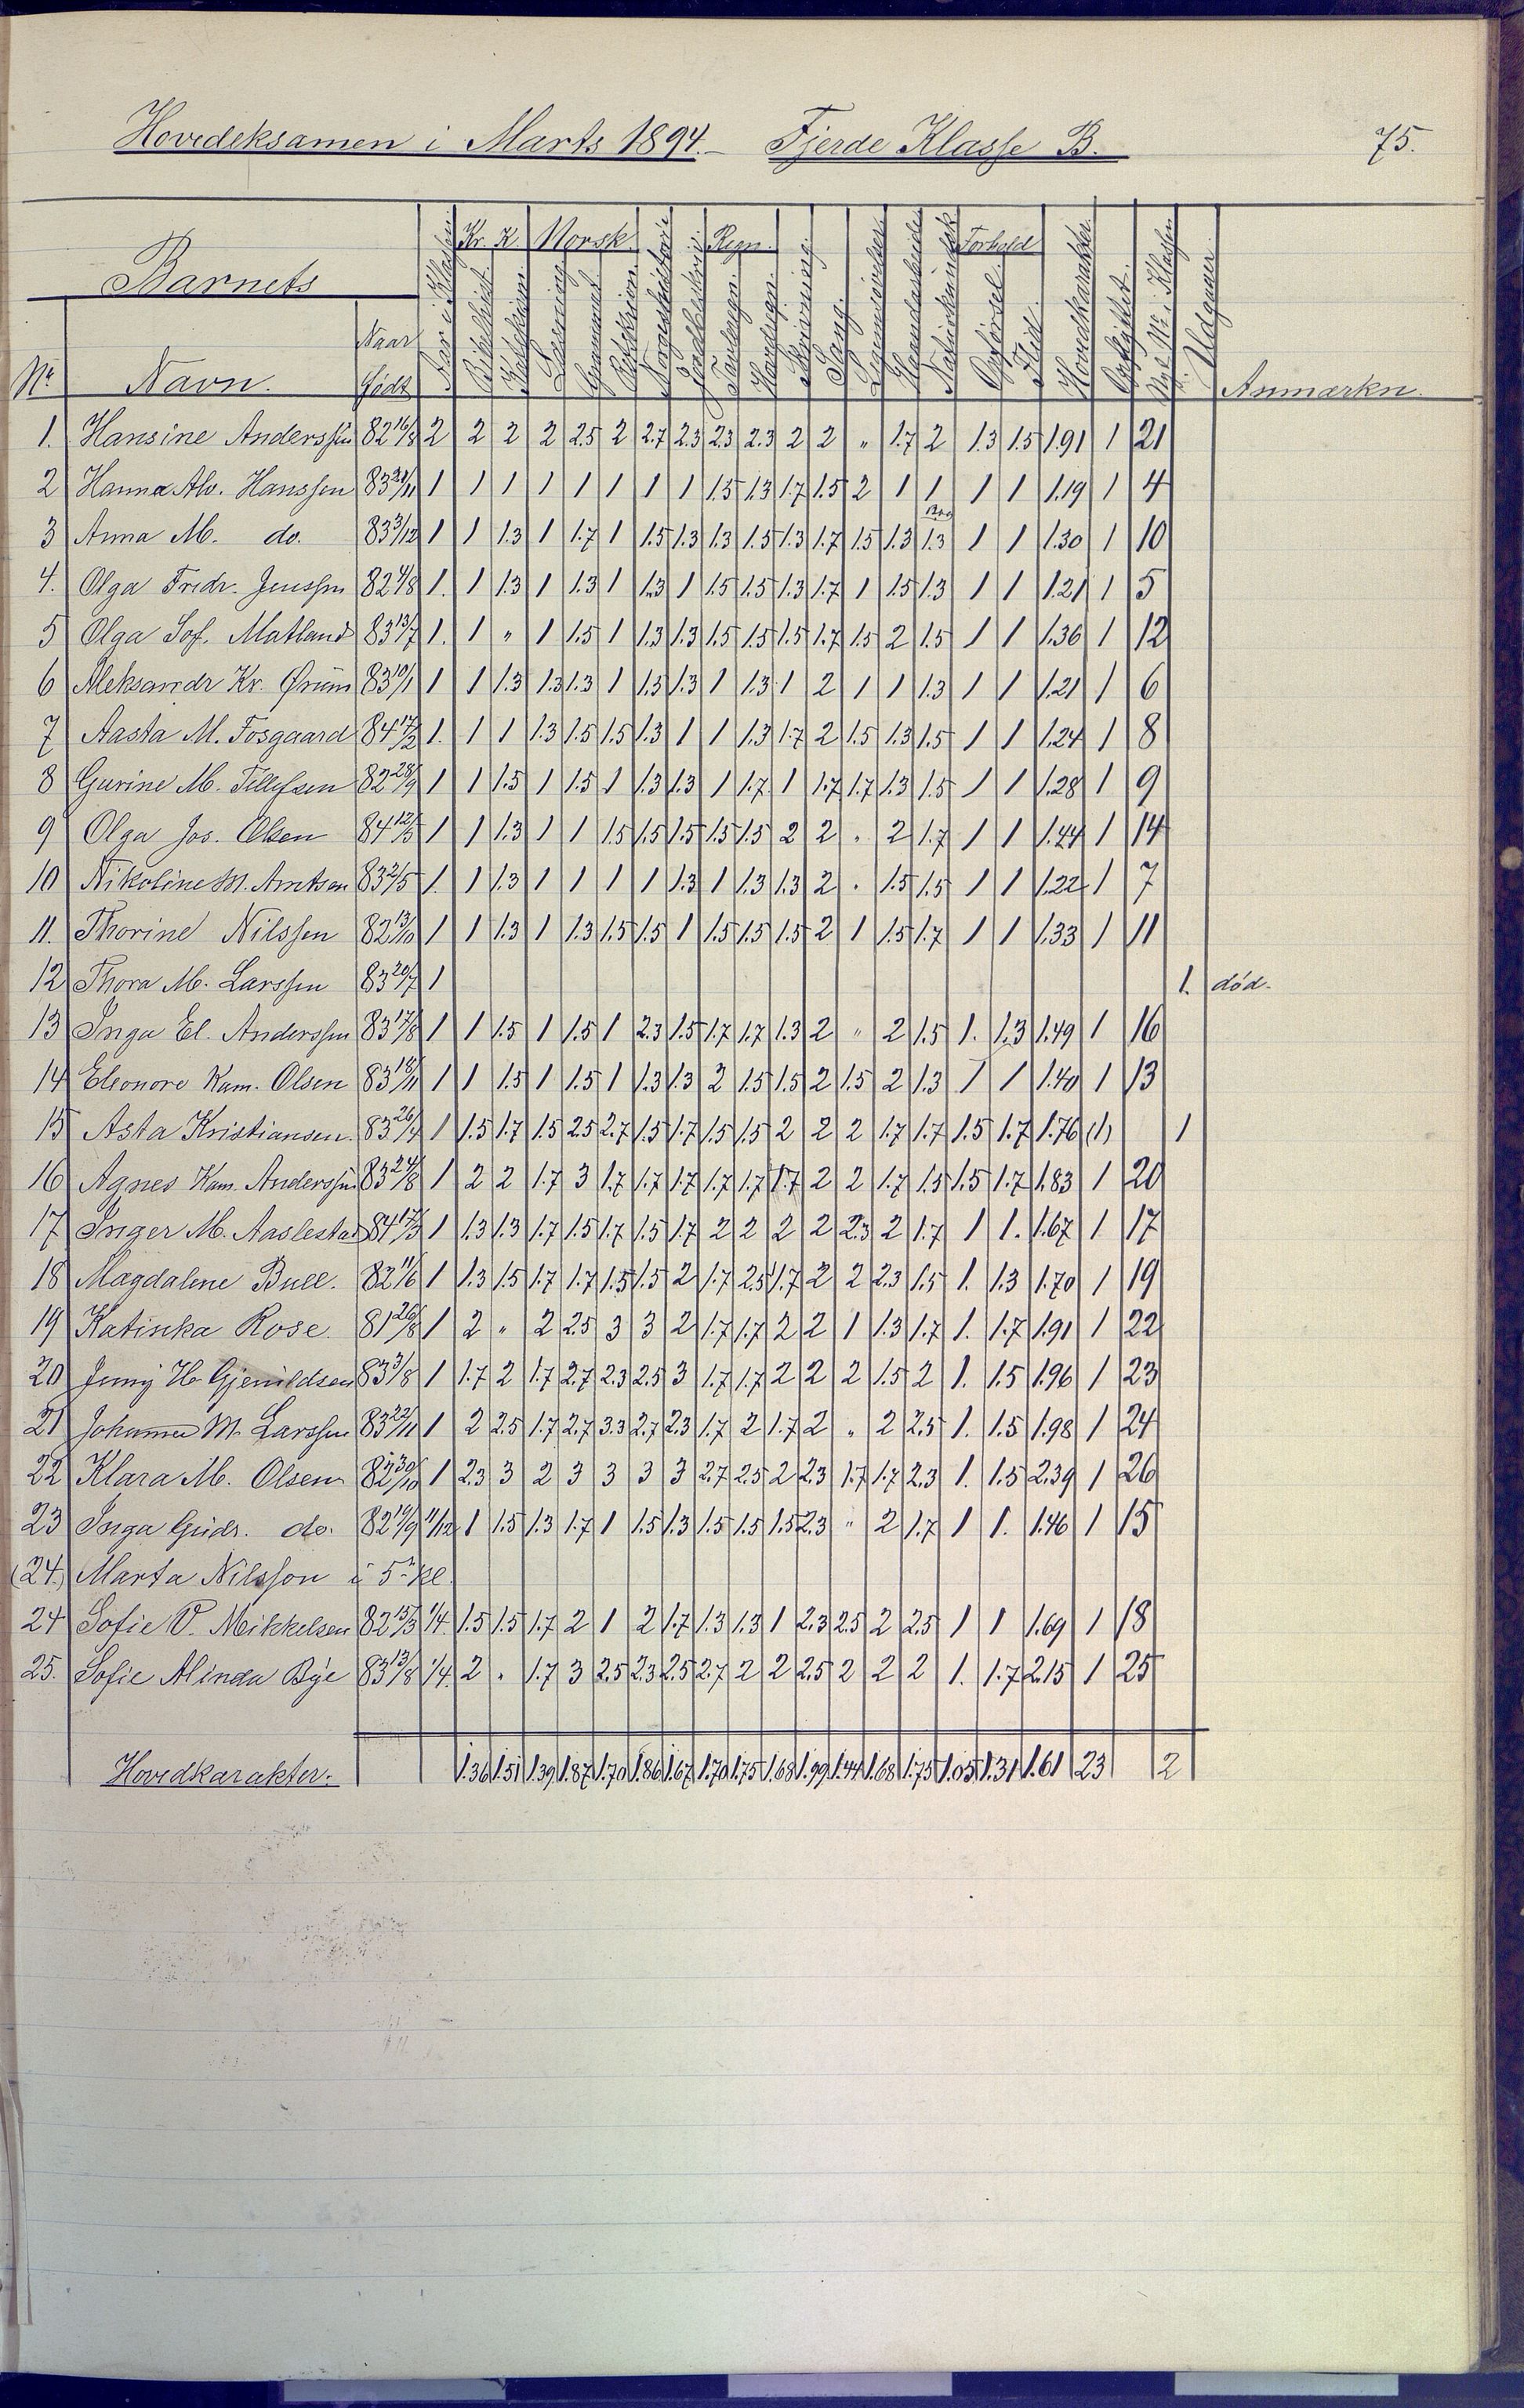 Hovedeksamen i Marts 1894. Fjerde Klasse B. 75.
Barnets Kr. K Norsk. Regn. Forhold
Nr. Navn. Naar født Aar i Klassen. Bibelhist. Katekism. Læsning Grammat. Retskrivn. Norgeshistorie Jordbeskriv. Tavleregn. Hovedregn. Skrivning. Sang. Legemsøvelser Haandarbeide Naturkundsk. Opførsel. Flid. Hovedkarakter. Opflyttet. Nr. i Klassen. Udgaaer. Anmærkn.
1. Hansine Anderssen 82 16/8 2 2 2 2 2.5 2 2.7 2.3 2.3 2.3 2 2 „ 1.7 2 1.3 1.5 1.91 1 21
2 Hanna Alv. Hanssen 83 21/11 1 1 1 1 1 1 1 1 1.5 1.3 1.7 1.5 2 1 1 1 1 1.19 1 4
3 Anna M. do. 83 3/12 1 1 1.3 1 1.7 1 1.5 1.3 1.3 1.5 1.3 1.7 1.5 1.3 1.3 1 1 1.30 1 10
4. Olga Fredr. Jenssen 82 4/8 1. 1 1.3 1 1.3 1 1.3 1 1.5 1.5 1.3 1.7 1 1.5 1.3 1 1 1.21 1 5
5 Olga Sof. Matland 83 13/7 1. 1 „ 1 1.5 1 1.3 1.3 1.5 1.5 1.5 1.7 1.5 2 1.5 1 1 1.36 1 12
6 Aleksandr Kr. Ørum 83 10/1 1 1 1.3 1.3 1.3 1 1.3 1.3 1 1.3 1 2 1 1 1.3 1 1 1.21 1 6
7 Aasta M. Fosgaard 84 17/2 1. 1 1 1.3 1.5 1.5 1.3 1 1 1.3 1.7 2 1.5 1.3 1.5 1 1 1.24 1 8
8 Gurine M. Tellefsen 82 28/9 1 1 1.5 1 1.5 1 1.3 1.3 1 1.7 1 1.7 1.7 1.3 1.5 1 1 1.28 1 9
9 Olga Jos. Olsen 84 12/5 1 1 1.3 1 1 1.5 1.5 1.5 1.5 1.5 2 2 „ 2 1.7 1 1 1.44 1 14
10 Nikoline M. Arntsen 83 2/5 1. 1 1.3 1 1 1 1 1.3 1 1.3 1.3 2 „ 1.5 1.5 1 1 1.22 1 7
11. Thorine Nilssen 82 13/10 1 1 1.3 1 1.3 1.5 1.5 1 1.5 1.5 1.5 2 1 1.5 1.7 1 1 1.33 1 11
12 Thora M. Larssen 83 20/7 1 1. død.
13 Inga El. Anderssen 83 17/8 1 1 1.5 1 1.5 1 2.3 1.5 1.7 1.7 1.3 2 „ 2 1.5 1. 1.3 1.49 1 16
14 Eleonore Kam. Olsen 83 18/11 1 1 1.5 1 1.5 1 1.3 1.3 2 1.5 1.5 2 1.5 2 1.3 1 1 1.40 1 13
15 Asta Kristiansen. 83 26/4 1 1.5 1.7 1.5 2.5 2.7 1.5 1.7 1.5 1.5 2 2 2 1.7 1.7 1.5 1.7 1.76 (1) 1
16 Agnes Kam. Anderssen 83 24/8 1 2 2 1.7 3 1.7 1.7 1.7 1.7 1.7 1.7 2 2 1.7 1.5 1.5 1.7 1.83 1 20
17 Inger M. Aaslestad 84 17/3 1 1.3 1.3 1.7 1.5 1.7 1.5 1.7 2 2 2 2 2.3 2 1.7 1 1. 1.67 1 17
18 Magdalene Bull. 82 11/6 1 1.3 1.5 1.7 1.7 1.5 1.5 2 1.7 2.5 1.7 2 2 2.3 1.5 1. 1.3 1.70 1 19
19 Katinka Rose. 81 26/8 1 2 „ 2 2.5 3 3 2 1.7 1.7 2 2 1 1.3 1.7 1. 1.7 1.91 1 22
20 Jenny H. Gjemildsen 83 3/8 1 1.7 2 1.7 2.7 2.3 2.5 3 1.7 1.7 2 2 2 1.5 2 1. 1.5 1.96 1 23
21 Johanna M. Larssen 83 22/11 1 2 2.5 1.7 2.7 3.3 2.7 2.3 1.7 2 1.7 2 „ 2 2.5 1. 1.5 1.98 1 24
22 Klara M. Olsen 82 30/10 1 2.3 3 2 3 3 3 3 2.7 2.5 2 2.3 1.7 1.7 2.3 1. 1.5 2.39 1 26
23 Inga Gudr. do. 82 19/9 11/12 1 1.5 1.3 1.7 1 1.5 1.3 1.5 1.5 1.5 2.3 „ 2 1.7 1 1. 1.46 1 15
(24.) Marta Nilsson i 5te kl.
24 Sofie V. Mikkelsen 82 15/3 1/4. 1.5 1.5 1.7 2 1 2 1.7 1.3 1.3 1 2.3 2.5 2 2.5 1 1 1.69 1 18
25. Sofie Alinda Bye 83 13/8 1/4. 2 „ 1.7 3 2.5 2.3 2.5 2.7 2 2 2.5 2 2 2 1. 1.7 2.15 1 25
Hovedkarakter. 1.36 1.51 1.39 1.87 1.70 1.86 1.67 1.70 1.75 1.68 1.99 1.44 1.68 1.75 1.05 1.31 1.61 23 2